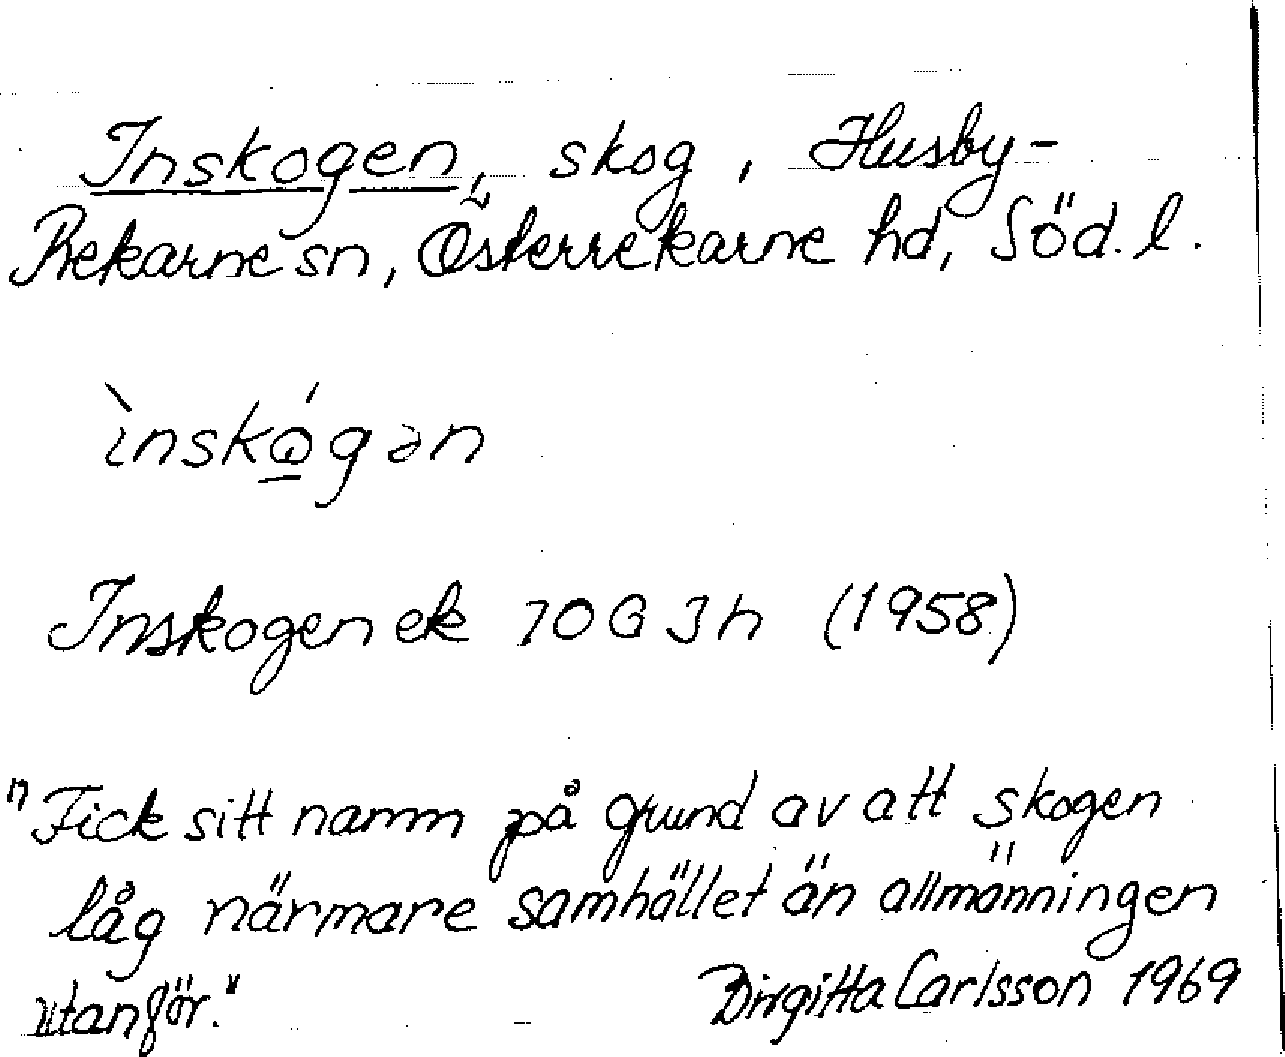 Inskogen, skog, Husby-
Rekarne sn, Österrekarne hd, Söd. l.
ìnskǫ́gən
Inskogen ek 10G 3h (1958)
"Fick sitt namn på grund av att skogen
låg närmare samhället än allmänningen
utanför."
Birgitta Carlsson 1969